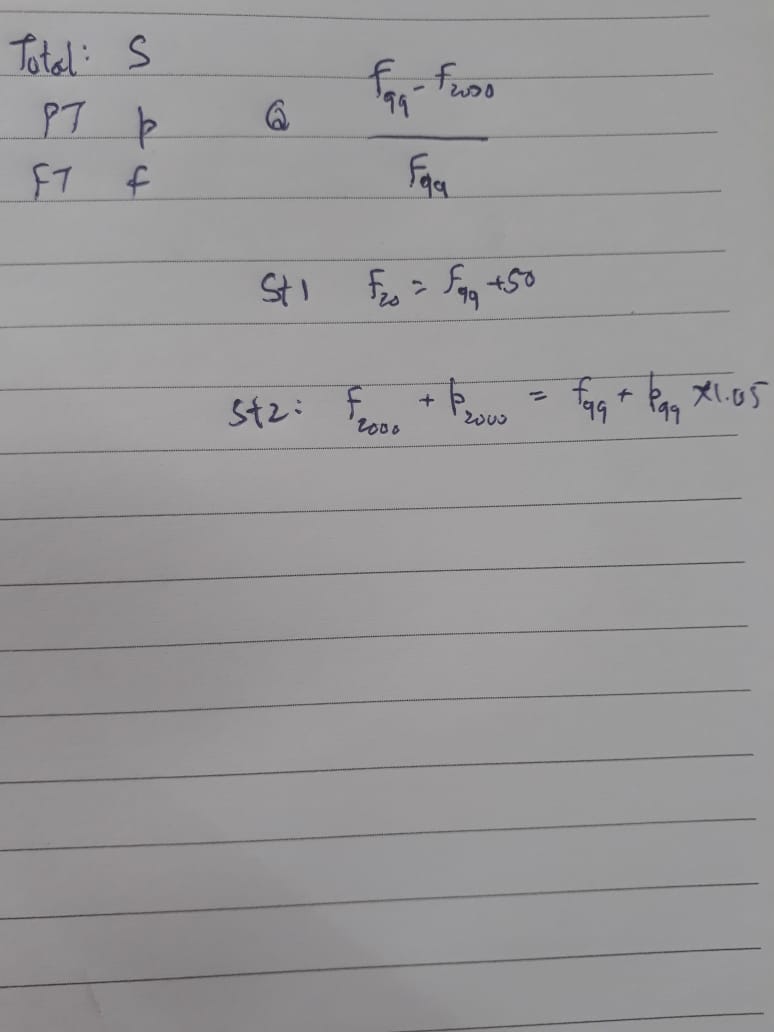 Total: S
PT p
FT f
Q f99 - f2000
F99
St1 F20 = f99 +50
St2: F2000 + p2000 = f99 + p99 x1.05